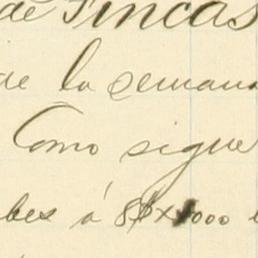 de Fincas
de la semana
Como sigue
bes á